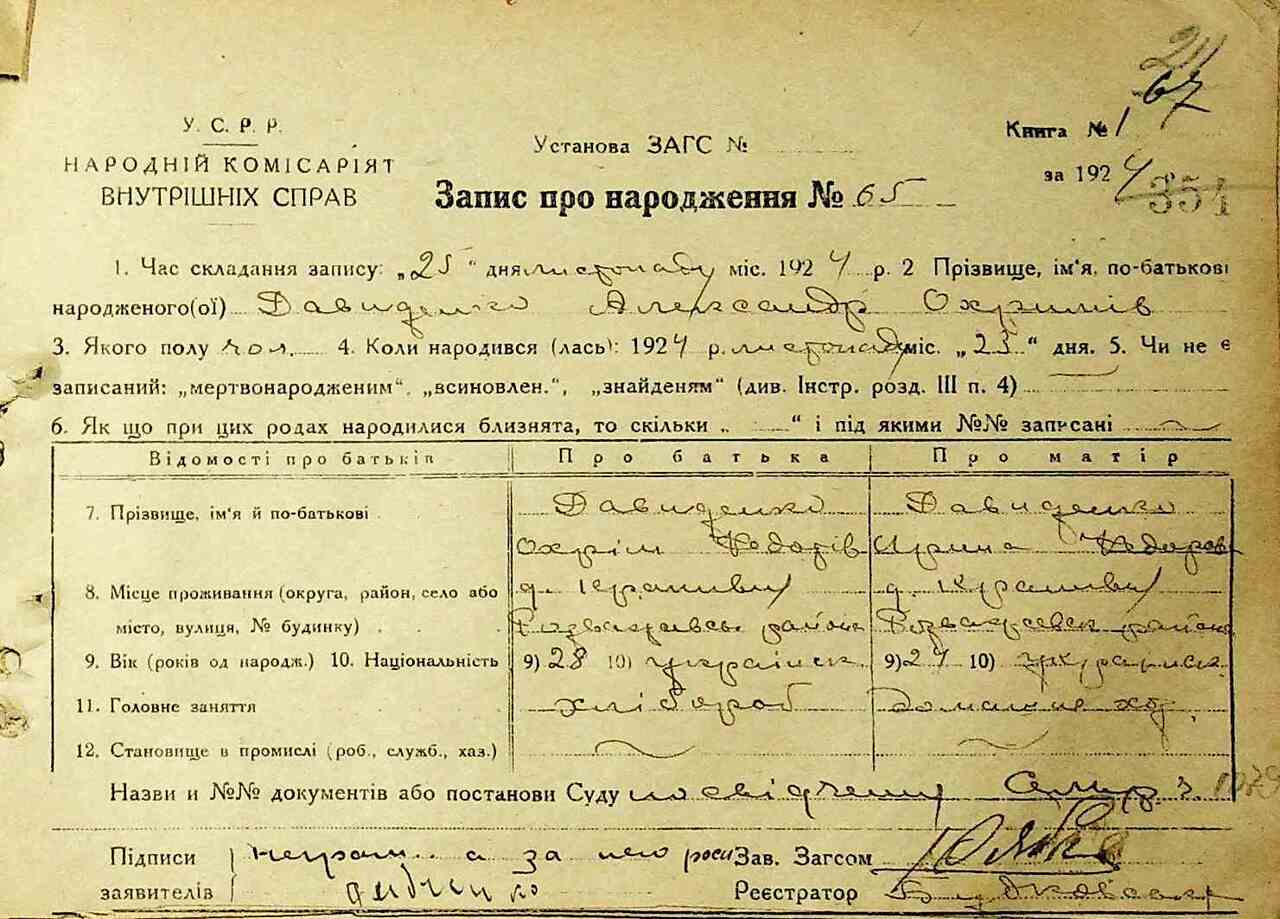 У. С. Р. Р.
НАРОДНІЙ КОМІСАРІЯТ
ВНУТРІШНІХ СПРАВ
Установа ЗАГС №
Запис про народження № 65
67
Книга № 1
за 1924
354
1. Час складання запису: „25“ дня листопаду міс. 1924 р. 2 Прізвище, ім'я, по-батькові
народженого(ої) Давиденко Александр Охримів
3. Якого полу чол. 4. Коли народився (лась): 1924 р. листопаду міс. „23“ дня. 5. Чи не є
записаний: „мертвонародженим“, „всиновлен.“, „знайденям“ (див. Інстр. розд. III п. 4)
6. Як що при цих родах народилися близнята, то скільки „ “ і під якими №№ записані
Відомості про батьків Про батька Про матір
7. Прізвище, ім'я й по-батькові Давиденко Давиденко
Охрім Федотів Ирина
8. Місце проживання (округа, район, село або
місто, вулиця, № будинку) району
9. Вік (років од народж.) 10. Національність 9) 28 10) українск. 9) 24 10) українск.
11. Головне заняття хлібороб домашне хоз.
12. Становище в промислі (роб., служб., хаз.)
Назви и №№ документів або постанови Суду посвідчення
Підписи неграм. а за него
заявителів
Зав. Загсом
Реєстратор